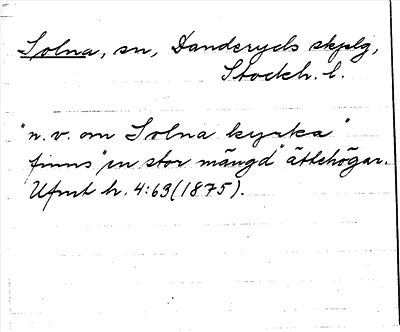 Solna, sn, Danderyds skplg,
Stockh. l.
"n. v. om Solna kyrka"
finns "en stor mängd" ättehögar.
Ufmt h. 4:63 (1875).